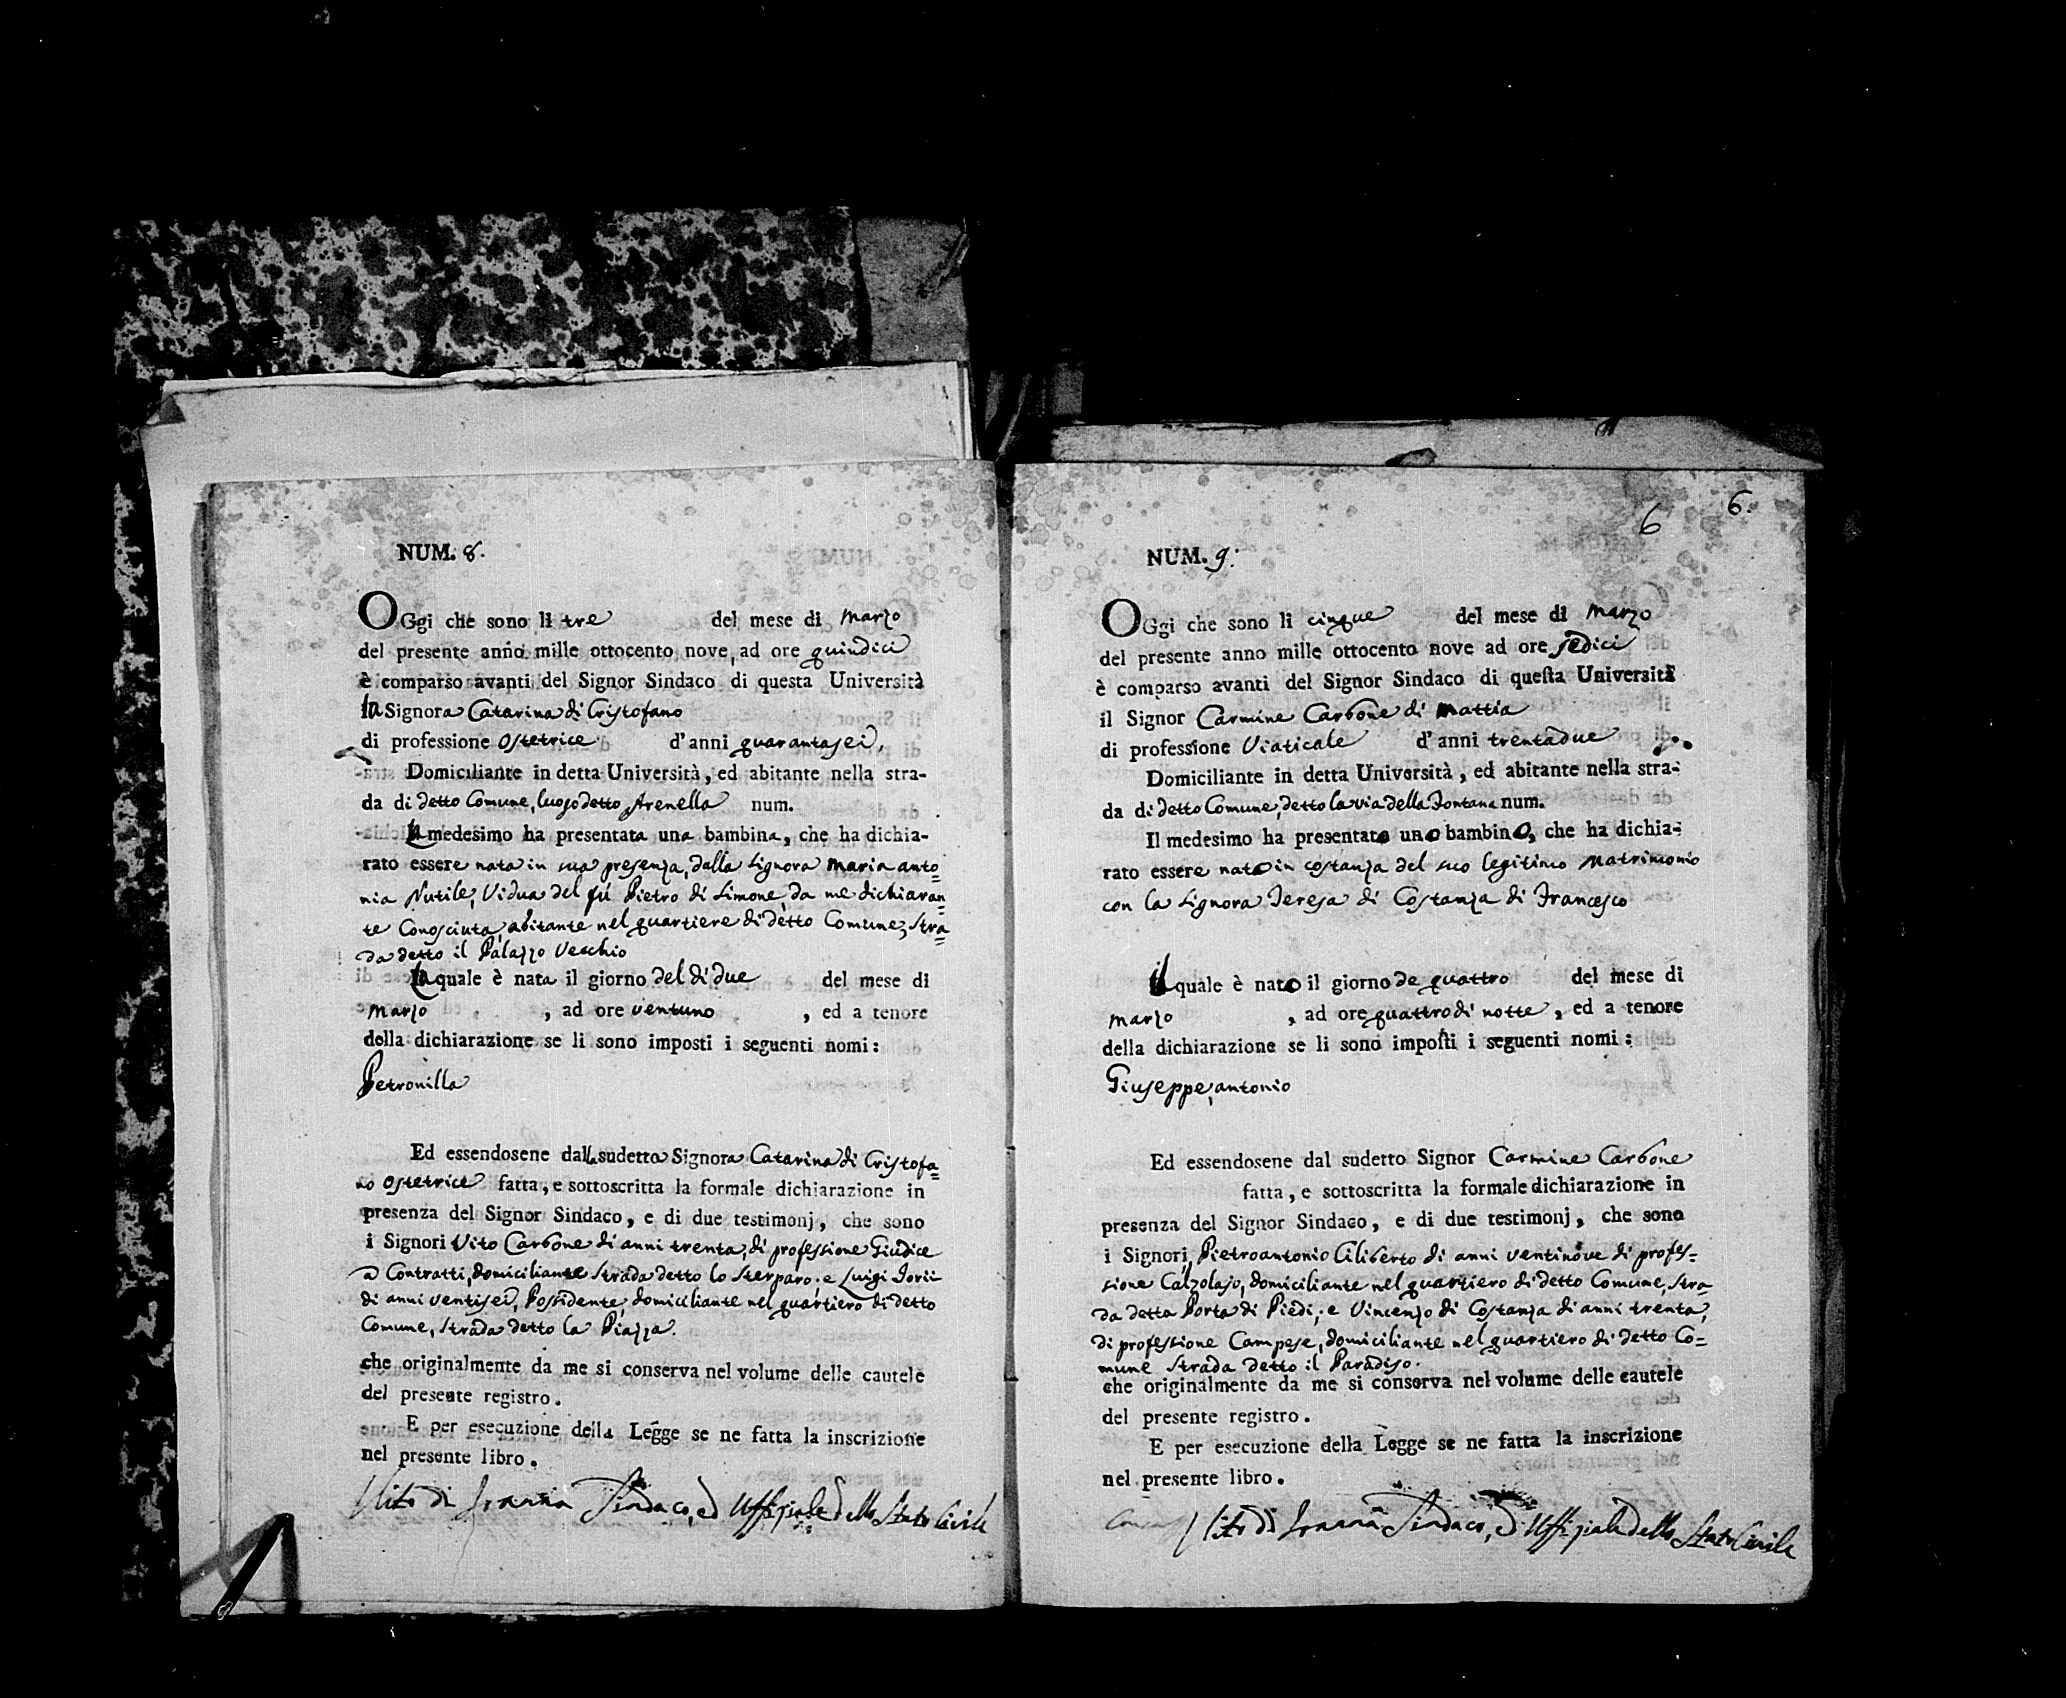 NUM. 8.
OGgi che sono li tre del mese di Marzo
del presente anno mille ottocento nove, ad ore quindici
è comparso avanti del Signor Sindaco di questa Università
la Signora Catarina di Cristofano
di professione Ostetrice d'anni quarantasei,
Domiciliante in detta Università, ed abitante nella stra-
da di detto Comune, luogo detto Arenella num.
La medesimo ha presentata una bambina, che ha dichia-
rato essere nata in sua presenza, dalla Signora Maria anto=
nia Nutile, Vidua del fú Pietro di Simone, da me dichiaran=
te Conosciuta, abitante nel quartiere di detto Comune, Stra=
da detto il Palazzo Vecchio
La quale è nata il giorno del di due del mese di
Marzo , ad ore ventuno , ed a tenore
della dichiarazione se li sono imposti i seguenti nomi:
Petronilla
Ed essendosene dalla sudetta Signora Catarina di Cristofa=
no Ostetrice fatta, e sottoscritta la formale dichiarazione in
presenza del Signor Sindaco, e di due testimonj, che sono
i Signori Vito Carbone di anni trenta, di professione Giudice
a Contratti, domiciliante Strada detto lo Sterparo; e Luigi Iorii
di anni ventisei, Possidente, domiciliante nel quartiero di detto
Comune, Strada detto la Piazza.
che originalmente da me si conserva nel volume delle cautele
del presente registro.
E per esecuzione della Legge se ne fatta la inscrizione
nel presente libro.
Vito di Sindaco, ed Uffiziale dello Stato Civile
6 6.
NUM. 9.
OGgi che sono li cinque del mese di Marzo
del presente anno mille ottocento nove ad ore sedici
è comparso avanti del Signor Sindaco di questa Università
il Signor Carmine Carbone di Mattia
di professione Viaticale d'anni trentadue
Domiciliante in detta Università, ed abitante nella stra-
da di detto Comune, detto la via della Fontana num.
Il medesimo ha presentato uno bambino, che ha dichia-
rato essere nato in costanza del suo legitimo Matrimonio
con la Signora Teresa di Costanza di Francesco
Il quale è nato il giorno de quattro del mese di
Marzo , ad ore quattro di notte, ed a tenore
della dichiarazione se li sono imposti i seguenti nomi:
Giuseppe, antonio
Ed essendosene dal sudetto Signor Carmine Carbone
fatta, e sottoscritta la formale dichiarazione in
presenza del Signor Sindaco, e di due testimonj, che sono
i Signori, Pietroantonio Ciliberto di anni ventinove di profes=
sione Calzolajo, domiciliante nel quartiero di detto Comune, Stra=
da detta Porta di Piedi; e Vincenzo di Costanza di anni trenta,
di professione Campese, domiciliante nel quartiero di detto Co=
mune Strada detto il Paradiso.
che originalmente da me si conserva nel volume delle cautele
del presente registro.
E per esecuzione della Legge se ne fatta la inscrizione
nel presente libro.
Vito di Sindaco, ed Uffiziale dello Stato Civile